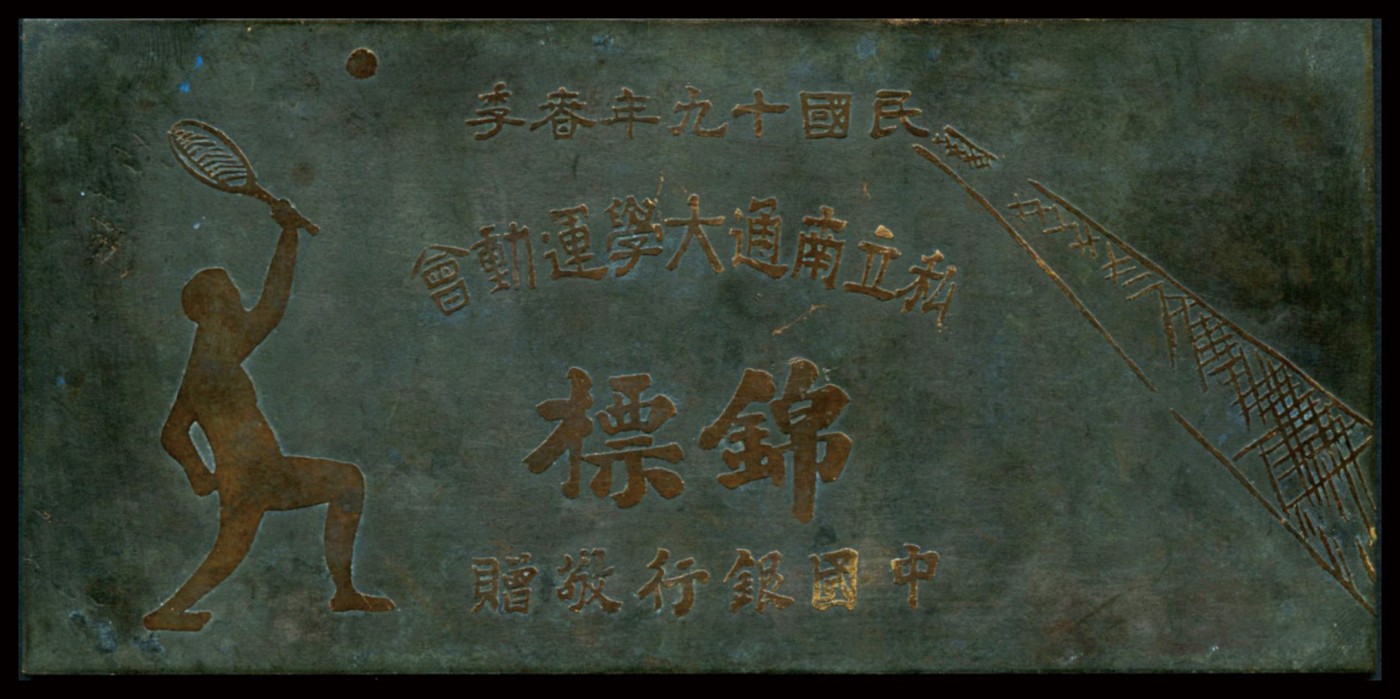 民國十九年春季
私立南通大學運動會
錦標
中國銀行敬贈